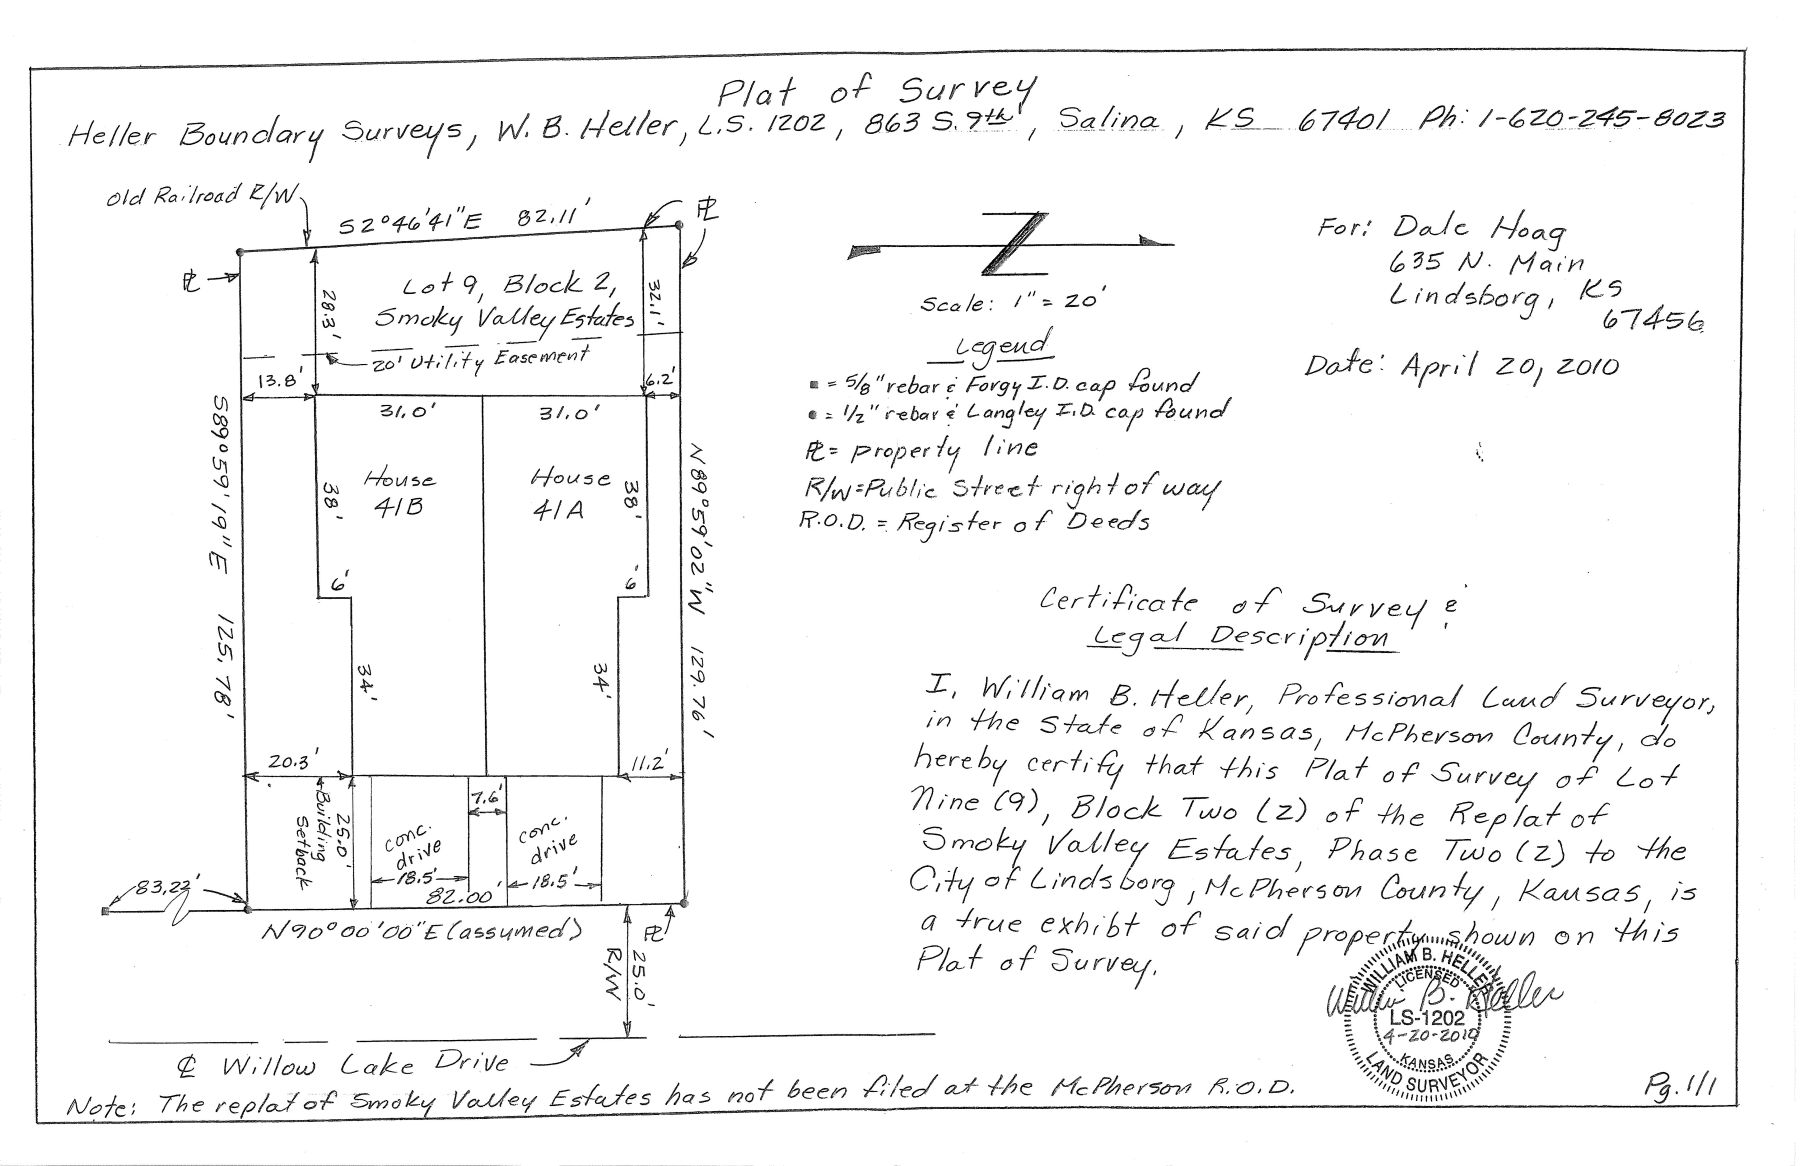 Plat of Survey
Heller Boundary Surveys, W. B. Heller, L.S. 1202, 863 S. 9th, Salina, KS 67401 Ph: 1-620-245-8023
Old Railroad R/W
S2°46'41"E 82.11'
PL
PL
Lot 9, Block 2,
Smoky Valley Estates
28.3'
32.1'
20' Utility Easement
13.8'
6.2'
31.0' 31.0'
S89°59'19"E 125.78'
N89°59'02"W 129.76'
House
41B
House
41A
38'
38'
6'
6'
34'
34'
20.3'
11.2'
7.6'
Building
Setback
25.0'
conc.
drive
conc.
drive
18.5'
18.5'
83.22'
82.00'
N90°00'00"E (assumed)
PL
R/W
25.0'
CL Willow Lake Drive
Note: The replat of Smoky Valley Estates has not been filed at the McPherson R.O.D.
Scale: 1" = 20'
Legend
= 5/8" rebar & Forgy I.D. cap found
= 1/2" rebar & Langley I.D. cap found
PL = property line
R/W = Public Street right of way
R.O.D. = Register of Deeds
For: Dale Hoag
635 N. Main
Lindsborg, KS
67456
Date: April 20, 2010
Certificate of Survey &
Legal Description
I, William B. Heller, Professional Land Surveyor,
in the State of Kansas, McPherson County, do
hereby certify that this Plat of Survey of Lot
Nine (9), Block Two (2) of the Replat of
Smoky Valley Estates, Phase Two (2) to the
City of Lindsborg, McPherson County, Kansas, is
a true exhibt of said property shown on this
Plat of Survey.
WILLIAM B. HELLER
LICENSED
LS-1202
4-20-2010
KANSAS
LAND SURVEYOR
Willia B. Heller
Pg. 1/1